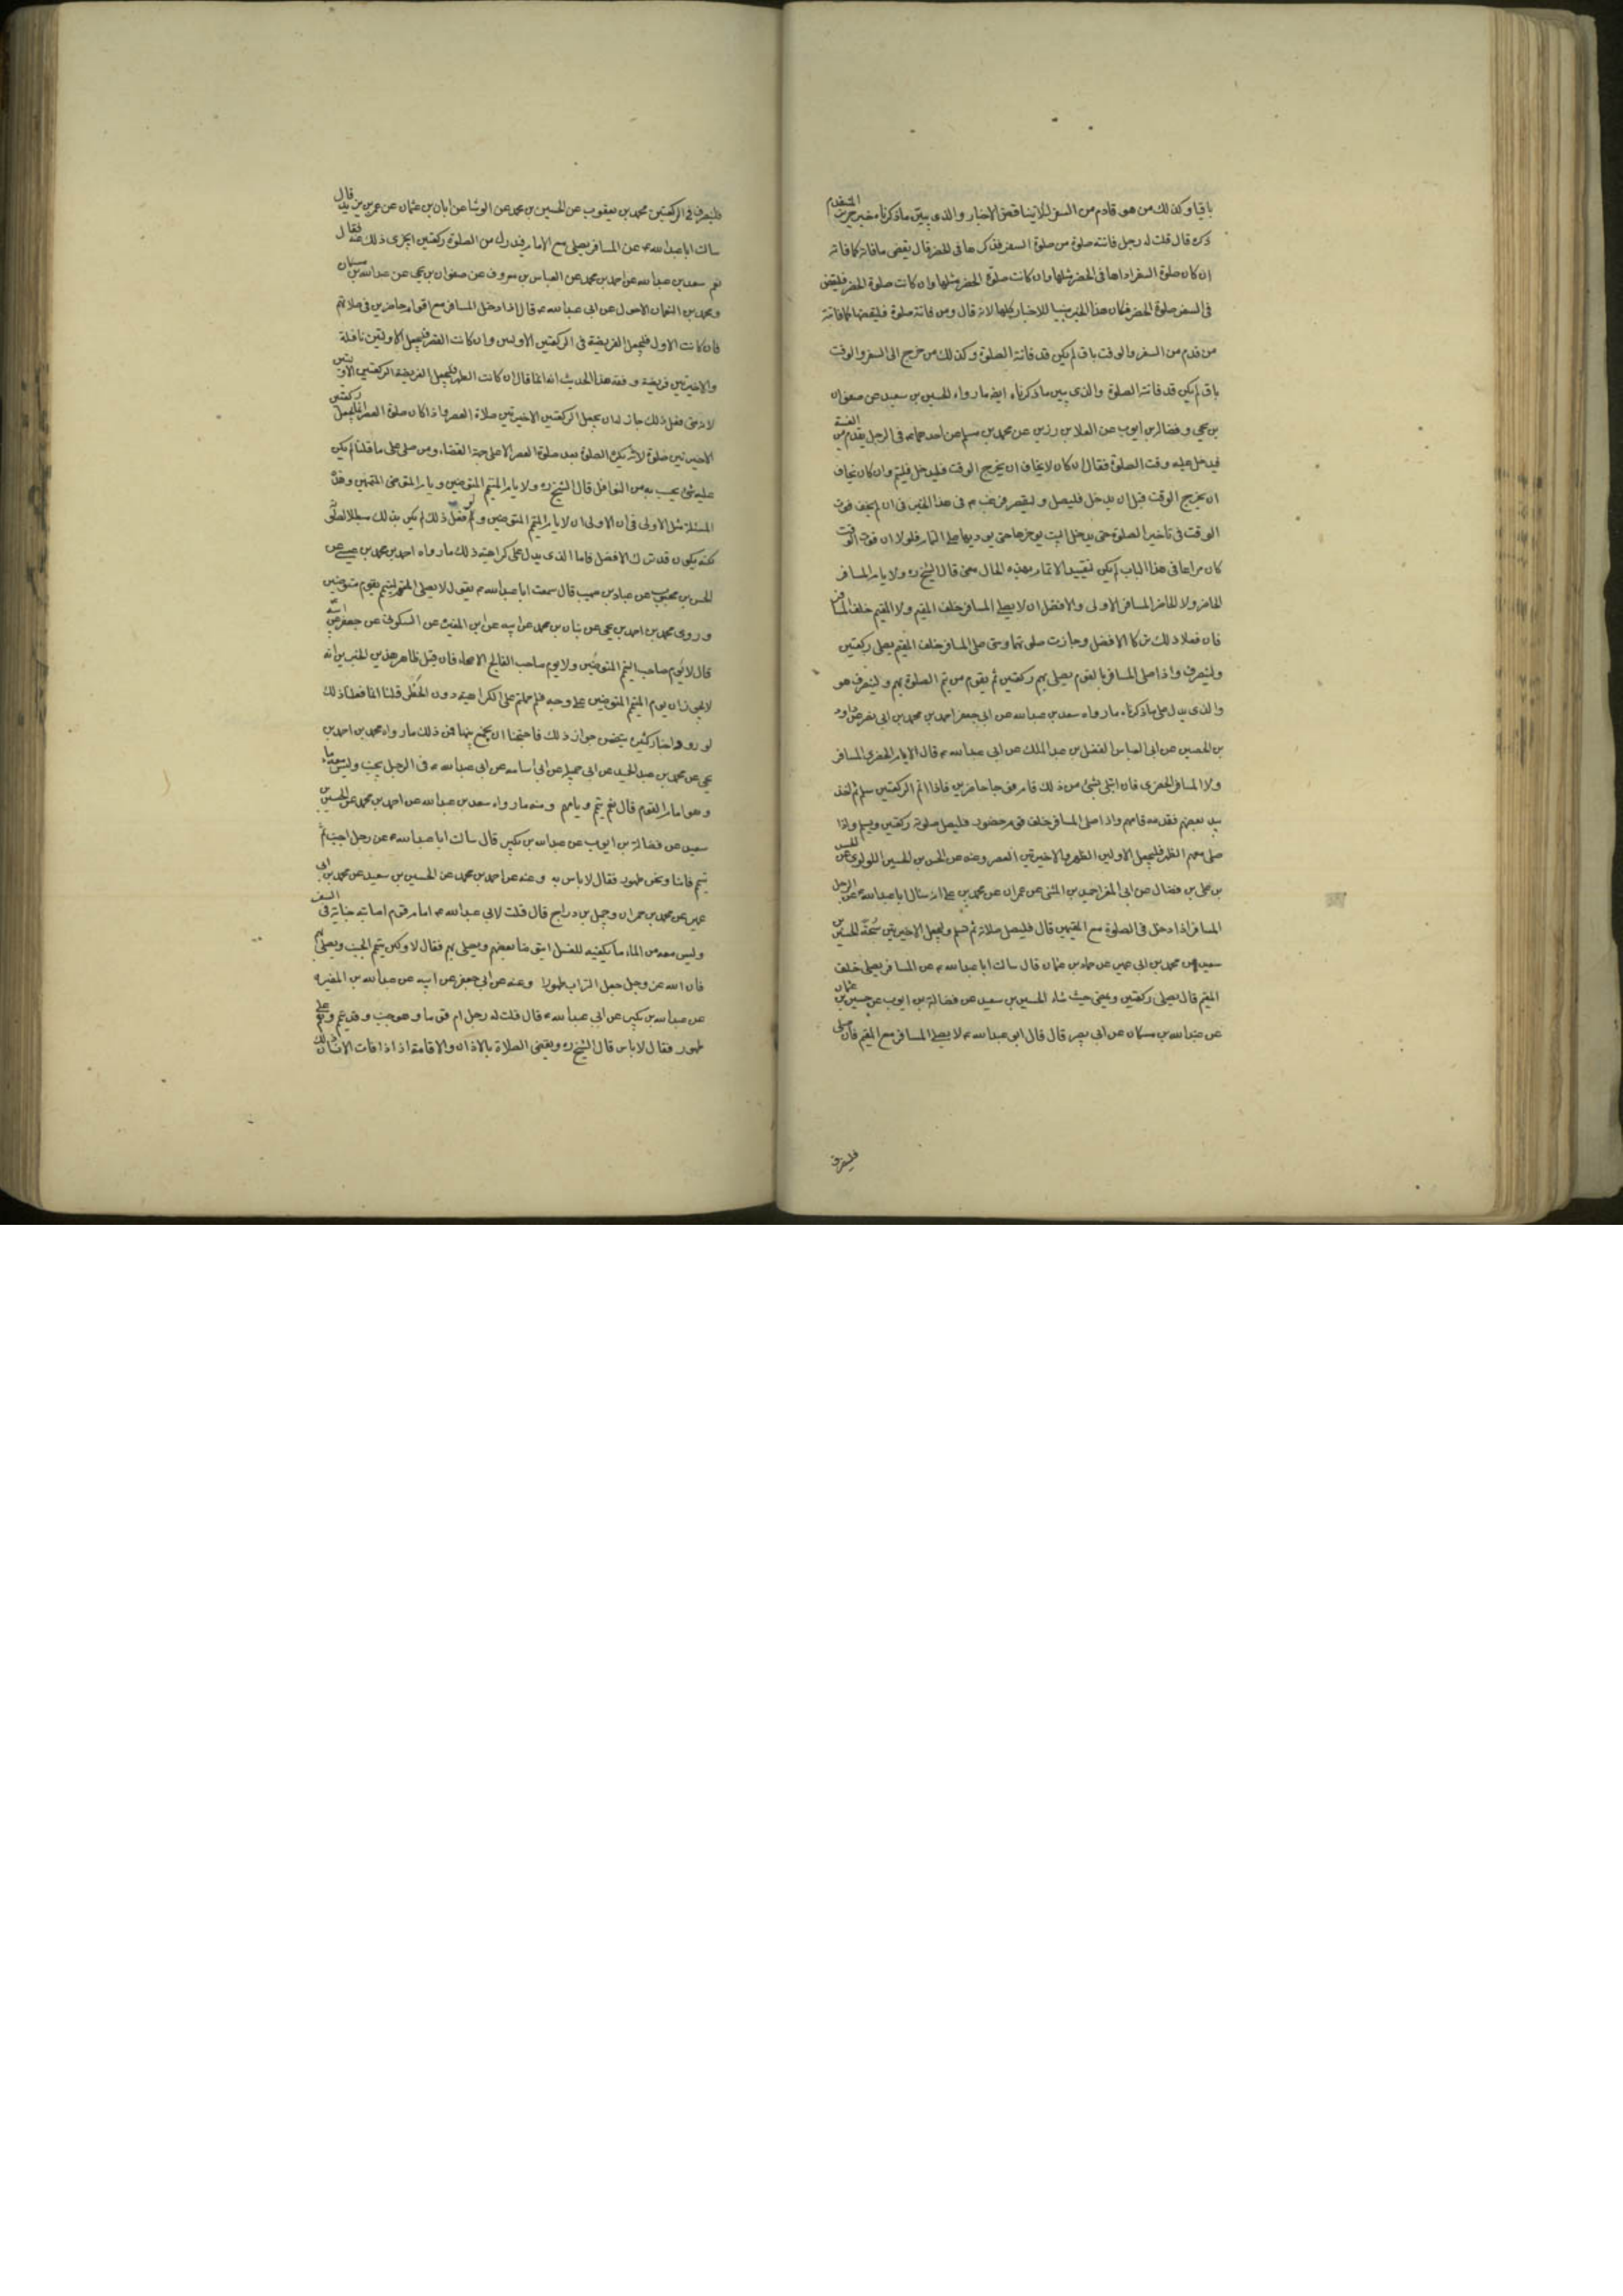 باقيا وكذلك من هو قادم من السفر لئلا يتناقض الاخبار والذي يبين ما ذكرناه خبر حريز المتقدم
ذكره قال قلت له رجل فاتته صلوة من صلوة السفر فذكرها في الحضر قال يقضى ما فاته كما فاته
ان كان صلوة السفر اداها في الحضر مثلها وان كانت صلوة الحضر مثلها وان كانت صلوة الحضر فليقض
في السفر صلوة الحضر فكان هذا الخبر مبينا للاخبار كلها لانه قال ومن فاتته صلوة فليقضها كما فاتته
من قدم من السفر والوقت باق لم يكن قد فاتته الصلوة وكذلك من خرج الى السفر والوقت
باق لم يكن قد فاتته الصلوة والذي يبين ما ذكرناه ايضا ما رواه الحسين بن سعيد عن صفوان
بن يحيى وفضالة بن ايوب عن العلا بن رزين عن محمد بن مسلم عن احدهما ع في الرجل يقدم من الغيبة
فيدخل عليه وقت الصلوة فقال ان كان لا يخاف ان يخرج الوقت فليدخل فليتم وان كان يخاف
ان يخرج الوقت قبل ان يدخل فليصل وليقصر فرغب ع في هذا الخبر في ان لم يخف فوت
الوقت في تاخير الصلوة حتى يدخل البيت يوخرها حتى يوديها على التمام فلولا ان فوت الوقت
كان مراعا في هذا الباب لم يكن لتقييد الاتمام بهذه الحال معنى قال الشيخ ره ولا يام المسافر
الحاضر ولا الحاضر المسافر الاولى والافضل ان لا يصلي المسافر خلف المقيم ولا المقيم خلف المسافر
فان فعلا ذلك تركا الافضل وجازت صلوتهما ومتى صلى المسافر خلف المقيم يصلى ركعتين
ولينصرف واذا صلى المسافر بالقوم يصلى بهم ركعتين ثم يقوم من يتم الصلوة بهم ولينصرف هو
والذي يدل على ما ذكرناه ما رواه سعد بن عبد الله عن ابي جعفر احمد بن محمد بن ابي نصر عن داود
بن الحصين عن ابي العباس الفضل بن عبد الملك عن ابي عبد الله ع قال لا يام الحضري المسافر
ولا المسافر الحضري فان ابتلى بشئ من ذلك فام قوما حاضرين فاذا اتم الركعتين سلم ثم اخذ
بيد بعضهم فقدمه فامهم واذا صلى المسافر خلف قوم حضور فليصل صلوته ركعتين ويسلم واذا
صلى معهم الظهر فليجعل الاولين الظهر والاخيرتين العصر وعنه عن الحسن بن الحسين اللولوي عن الحسن
بن على بن فضال عن ابي المغرا حميد بن المثنى عن عمران عن محمد بن على انه سئال ابا عبد الله ع عن الرجل
المسافر اذا دخل في الصلوة مع المقيمين قال فليصل صلاته ثم يسلم وليجعل الاخيرتين سبحة الحسين بن
سعيد عن محمد بن ابي عمير عن حماد بن عثمان قال سالت ابا عبد الله ع عن المسافر يصلى خلف
المقيم قال يصلى ركعتين ويمضى حيث شاء الحسين بن سعيد عن فضالة بن ايوب عن حسين بن عثمان
عن عبد الله بن مسكان عن ابي بصير قال قال ابو عبد الله ع لا يصلى المسافر مع المقيم فان صلى
فلينصرف
فلينصرف في الركعتين محمد بن يعقوب عن الحسين بن محمد عن الوشا عن ابان بن عثمان عن عمر بن يزيد قال
سالت ابا عبد الله ع عن المسافر يصلى مع الامام فيدرك من الصلوة ركعتين ايجزى ذلك عنه فقال
نعم سعد بن عبد الله عن احمد بن محمد عن العباس بن معروف عن صفوان بن يحيى عن عبد الله بن مسكان
ومحمد بن النعمان الاحول عن ابي عبد الله ع قال اذا دخل المسافر مع اقوام حاضرين في صلاتهم
فان كانت الاولى فليجعل الفريضة في الركعتين الاوليين وان كانت العصر فليجعل الاولتين نافلة
والاخيرتين فريضة وفقه هذا الحديث انه انما قال ان كانت الظهر فليجعل الفريضة الركعتين الاوليين
لانه متى فعل ذلك جاز له ان يجعل الركعتين الاخيرتين صلاة العصر واذا كان صلوة العصر فليجعل ركعتين
الاخيرتين صلوة لانه يكره الصلوة بعد صلوة العصر الا على جهة القضاء ومن صلى على ما قلنا لم يكن
عليه شئ يحسب به من النوافل قال الشيخ ره ولا يام المتيمم المتوضين ويام المتوضى المتيممين وهذه
المسئلة مثل الاولى في ان الاولى ان لا يام المتيمم المتوضين ولو فعل ذلك لم يكن بذلك مبطلا لصلوته
لكنه يكون قد ترك الافضل فاما الذي يدل على كراهية ذلك ما رواه احمد بن محمد بن عيسى عن
الحسن بن محبوب عن عباد بن صهيب قال سمعت ابا عبد الله ع يقول لا يصلى المتيمم بقوم متوضين
وروى محمد بن احمد بن يحيى عن بنان بن محمد عن ابيه عن ابن المغيرة عن السكوني عن جعفر عن ابيه
قال لا يوم صاحب التيمم المتوضين ولا يوم صاحب الفالج الاصحاء فان قيل ظاهر هذين الخبرين انه
لا يجوز ان يوم المتيمم المتوضين على وجه فلم حملتم على الكراهية دون الحظر قلنا انما فعلنا ذلك
لورود اخبار كثيرة يتضمن جواز ذلك فاحتجنا ان نجمع بينها فمن ذلك ما رواه محمد بن احمد بن
يحيى عن محمد بن عبد الحميد عن ابي جميلة عن ابي اسامة عن ابي عبد الله ع في الرجل يجنب وليس معه ماء
وهو امام القوم قال نعم يتيمم ويامهم ومنه ما رواه سعد بن عبد الله عن احمد بن محمد عن الحسين بن
سعيد عن فضالة بن ايوب عن عبد الله بن بكير قال سالت ابا عبد الله ع عن رجل اجنب ثم
تيمم فامنا ونحن طهور فقال لا باس به وعنه عن احمد بن محمد عن الحسين بن سعيد عن محمد بن ابي
عمير عن محمد بن حمران وجميل بن دراج قال قلت لابي عبد الله ع امام قوم اصابته جنابة في السفر
وليس معه من الماء ما يكفيه للغسل ايتوضا بعضهم ويصلى بهم فقال لا ولكن يتيمم الجنب ويصلى بهم
فان الله عز وجل جعل التراب طهورا وعنه عن ابي جعفر عن ابيه عن عبد الله بن المغيرة
عن عبد الله بن بكير عن ابي عبد الله ع قال قلت له رجل ام قوما وهو جنب وقد تيمم وهم على
طهور فقال لا باس قال الشيخ ره ويقضى الصلاة بالاذان والاقامة اذا فات الانسان ذلك